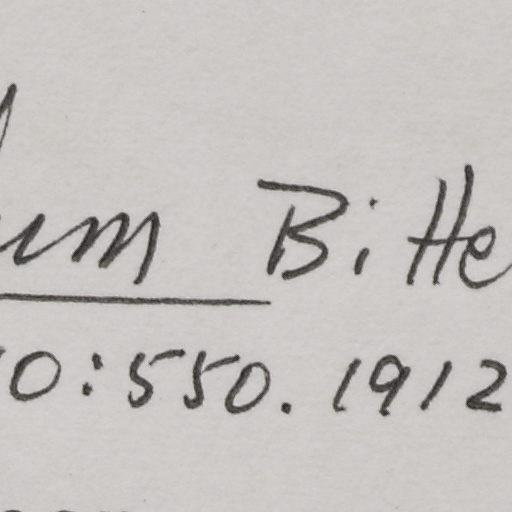 um Bitte
0:550.1912